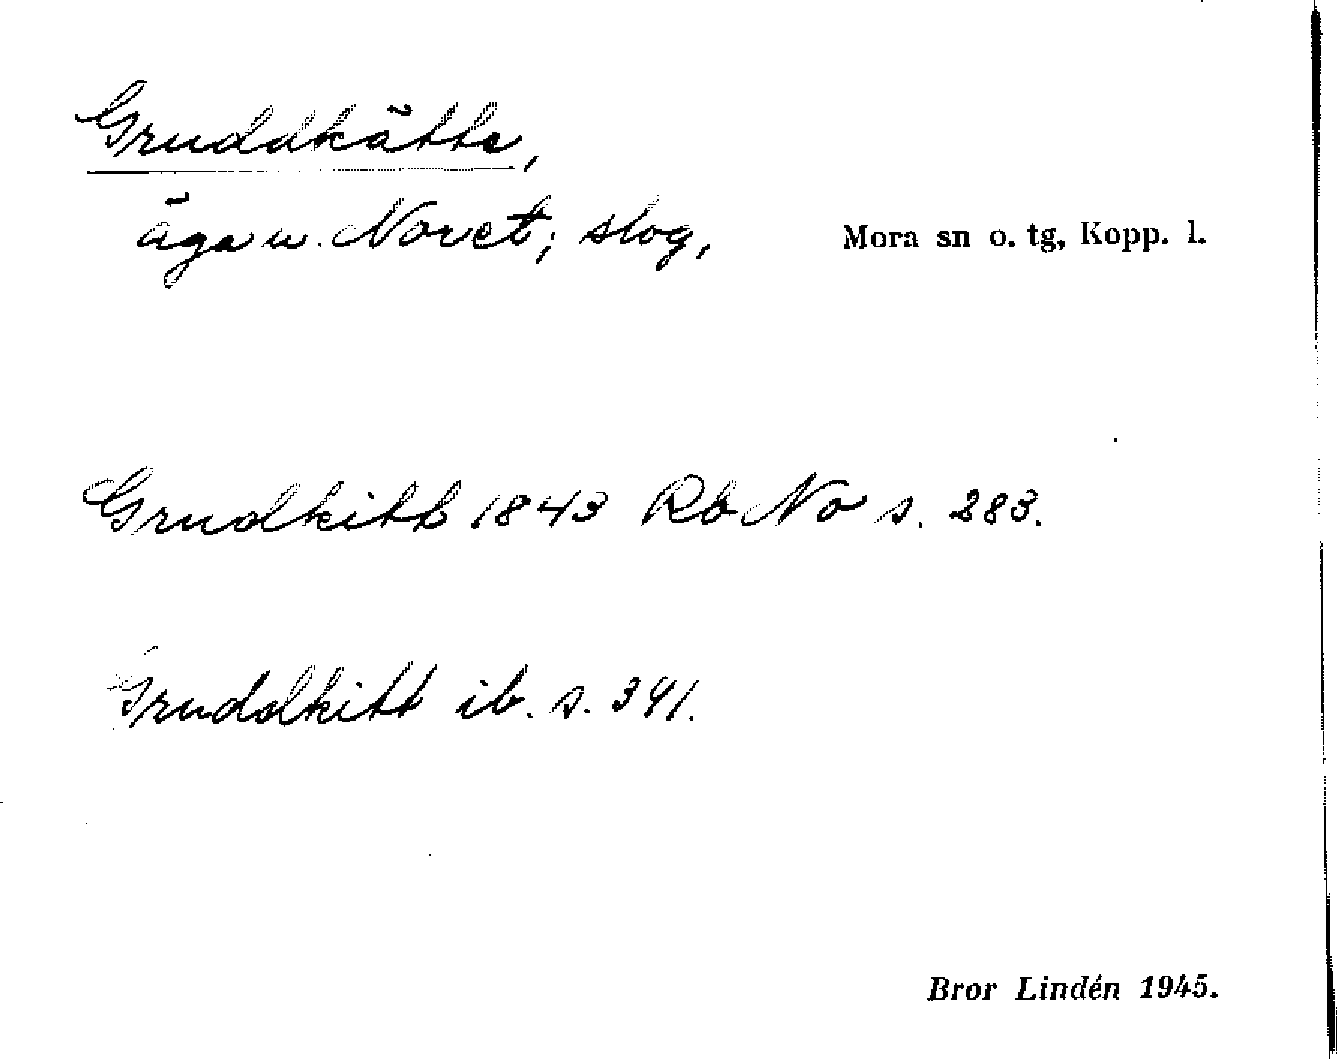 Gruddkätte,
äga u. Noret; slog, Mora sn o. tg, Kopp. l.
Grudkitt 1843 Rb No s. 283.
Gruddkitt ib. s. 341.
Bror Lindén 1945.